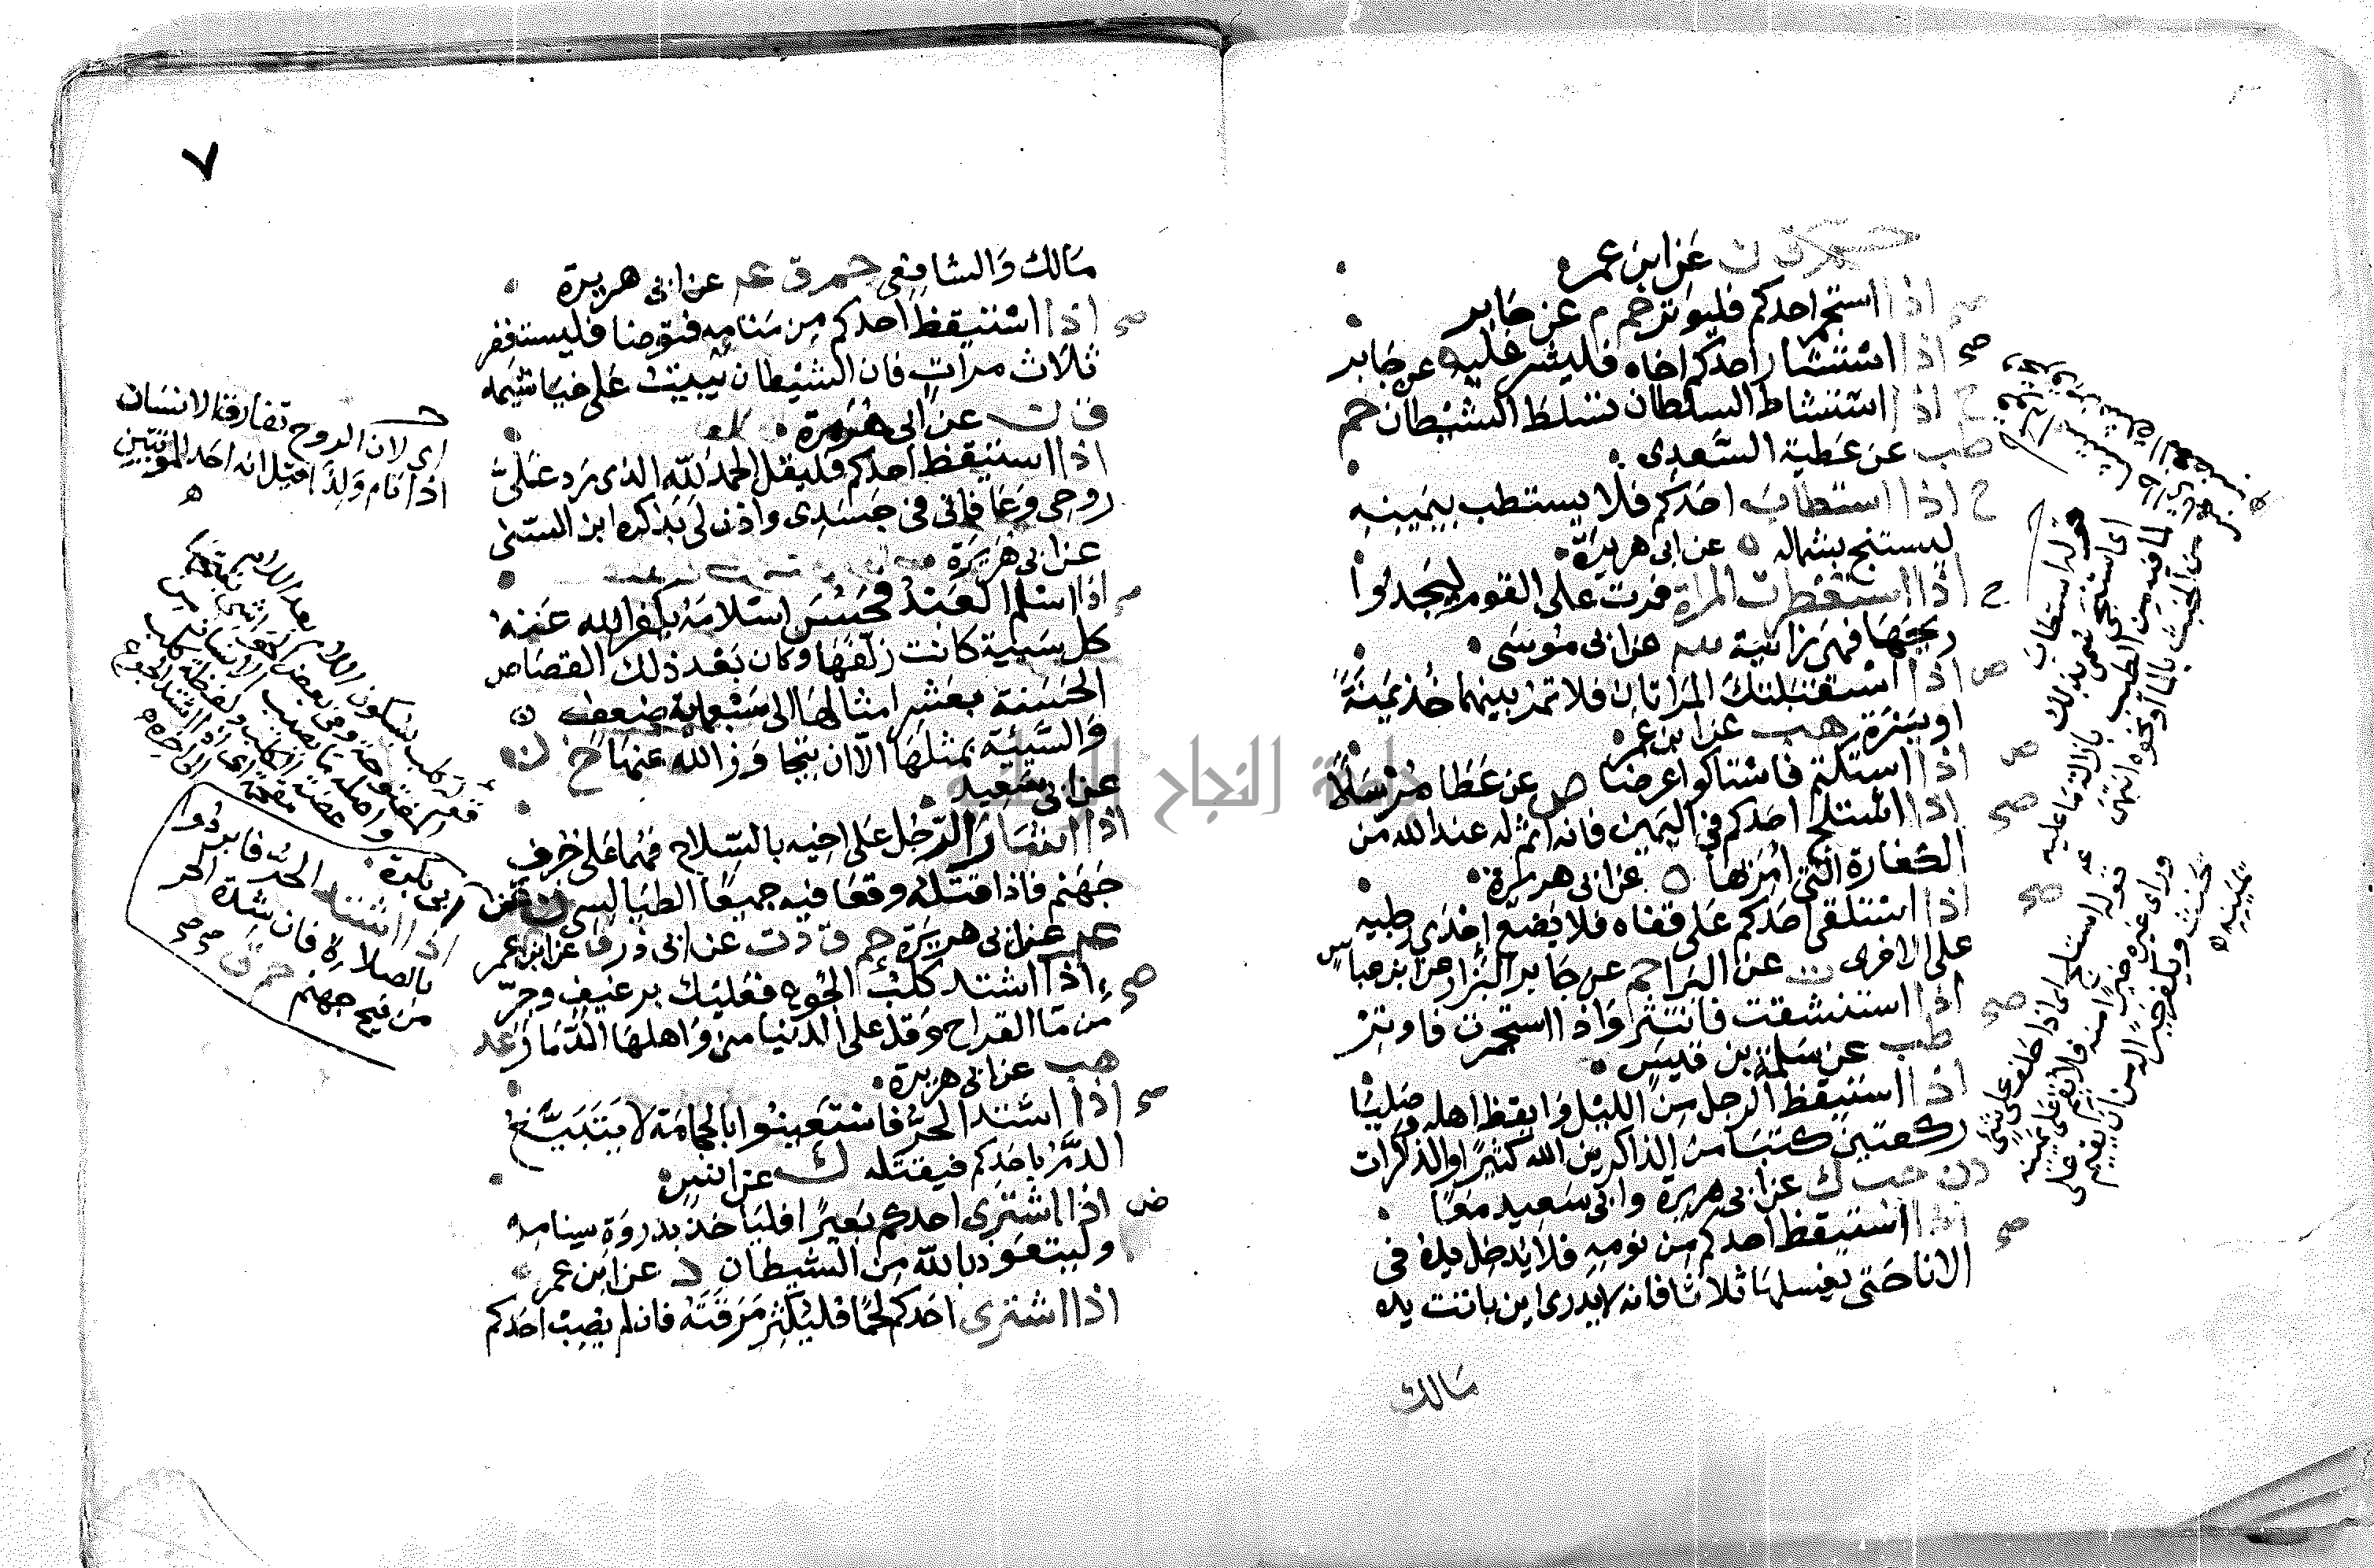 عن ابن عمر
اذا استجمر احدكم فليوتر حم م عن جابر
اذا استشار احدكم اخاه فليشر عليه ه عن جابر
اذا استشاط السلطان تسلط الشيطان حم
طب عن عطية السعدى
اذا استطاب احدكم فلا يستطب بيمينه
ليستنج بشماله ه عن ابى هريرة
اذا استعطرت المراة فمرت على القوم ليجدوا
ريحها فهى زانية عن ابى موسى
اذا استقبلتك المراتان فلا تمر بينهما خذ يمنة
او يسرة هب عن ابن عمر
اذا استكتم فاستاكوا عرضا ص عن عطا مرسلا
اذا استلج احدكم فى اليمين فانه اثم له عند الله من
الكفارة التى امر بها ه عن ابى هريرة
اذا استلقى احدكم على قفاه فلا يضع احدى رجليه
على الاخرى ت عن البرا حم عن جابر البزار عن ابن عباس
اذا استنشقت فانتثر واذا استجمرت فاوتر
طب عن سلمة بن قيس
اذا استيقظ الرجل من الليل وايقظ اهله وصليا
ركعتين كتبا من الذاكرين الله كثيرا والذاكرات
دن حب ك عن ابى هريرة وابى سعيد معا
اذا استيقظ احدكم من نومه فلا يدخل يده فى
الانا حتى يغسلها ثلاثا فانه لا يدرى اين باتت يده
مالك
قوله استطاب
اى استنجى سمى بذلك
لما فيه من الطيب بازالة ما عليه
من الخبث بالما او نحوه انتهى
قوله استلج اى اذا حلف على شئ
وراى غيره خيرا منه فلا يقم على يمينه
يحنث ويكفر خير له من ان يقيم على
يمينه ه
٧
مالك والشافعى حم ق عد عن ابى هريرة
اذا استيقظ احدكم من منامه فتوضا فليستنثر
ثلاث مرات فان الشيطان يبيت على خياشيمه
ق ن عن ابى هريرة
اذا استيقظ احدكم فليقل الحمد لله الذى رد على
روحى وعافانى فى جسدى واذن لى بذكره ابن السنى
عن ابى هريرة
اذا اسلم العبد فحسن اسلامه يكفر الله عنه
كل سيئة كانت زلفها وكان بعد ذلك القصاص
الحسنة بعشر امثالها الى سبعماية ضعف
والسيئة بمثلها الا ان يتجاوز الله عنها خ ن
عن ابى سعيد
اذا اشار الرجل على اخيه بالسلاح فهما على جرف
جهنم فاذا قتله وقعا فيه جميعا الطيالسى ن عن ابى بكرة
عد عن ابى هريرة حم ق د ت عن ابى ذر ق عن ابن عمر
اذا اشتد كلب الجوع فعليك برغيف وجر
من ما القراح وقل على الدنيا من واهلها الدمار عد
هب عن ابى هريرة
اذا اشتد الحر فاستعينوا بالحجامة لا يتبيغ
الدم باحدكم فيقتله ك عن انس
اذا اشترى احدكم بعيرا فلياخذ بذروة سنامه
وليتعوذ بالله من الشيطان د عن ابن عمر
اذا اشترى احدكم لحما فليكثر مرقته فان لم يصب احدكم
اى لان الروح تفارق الانسان
اذا نام ولذا قيل انه احد الموتتين
اذا اشتد الحر فابردوا
بالصلاة فان شدة الحر
من فيح جهنم حم ق